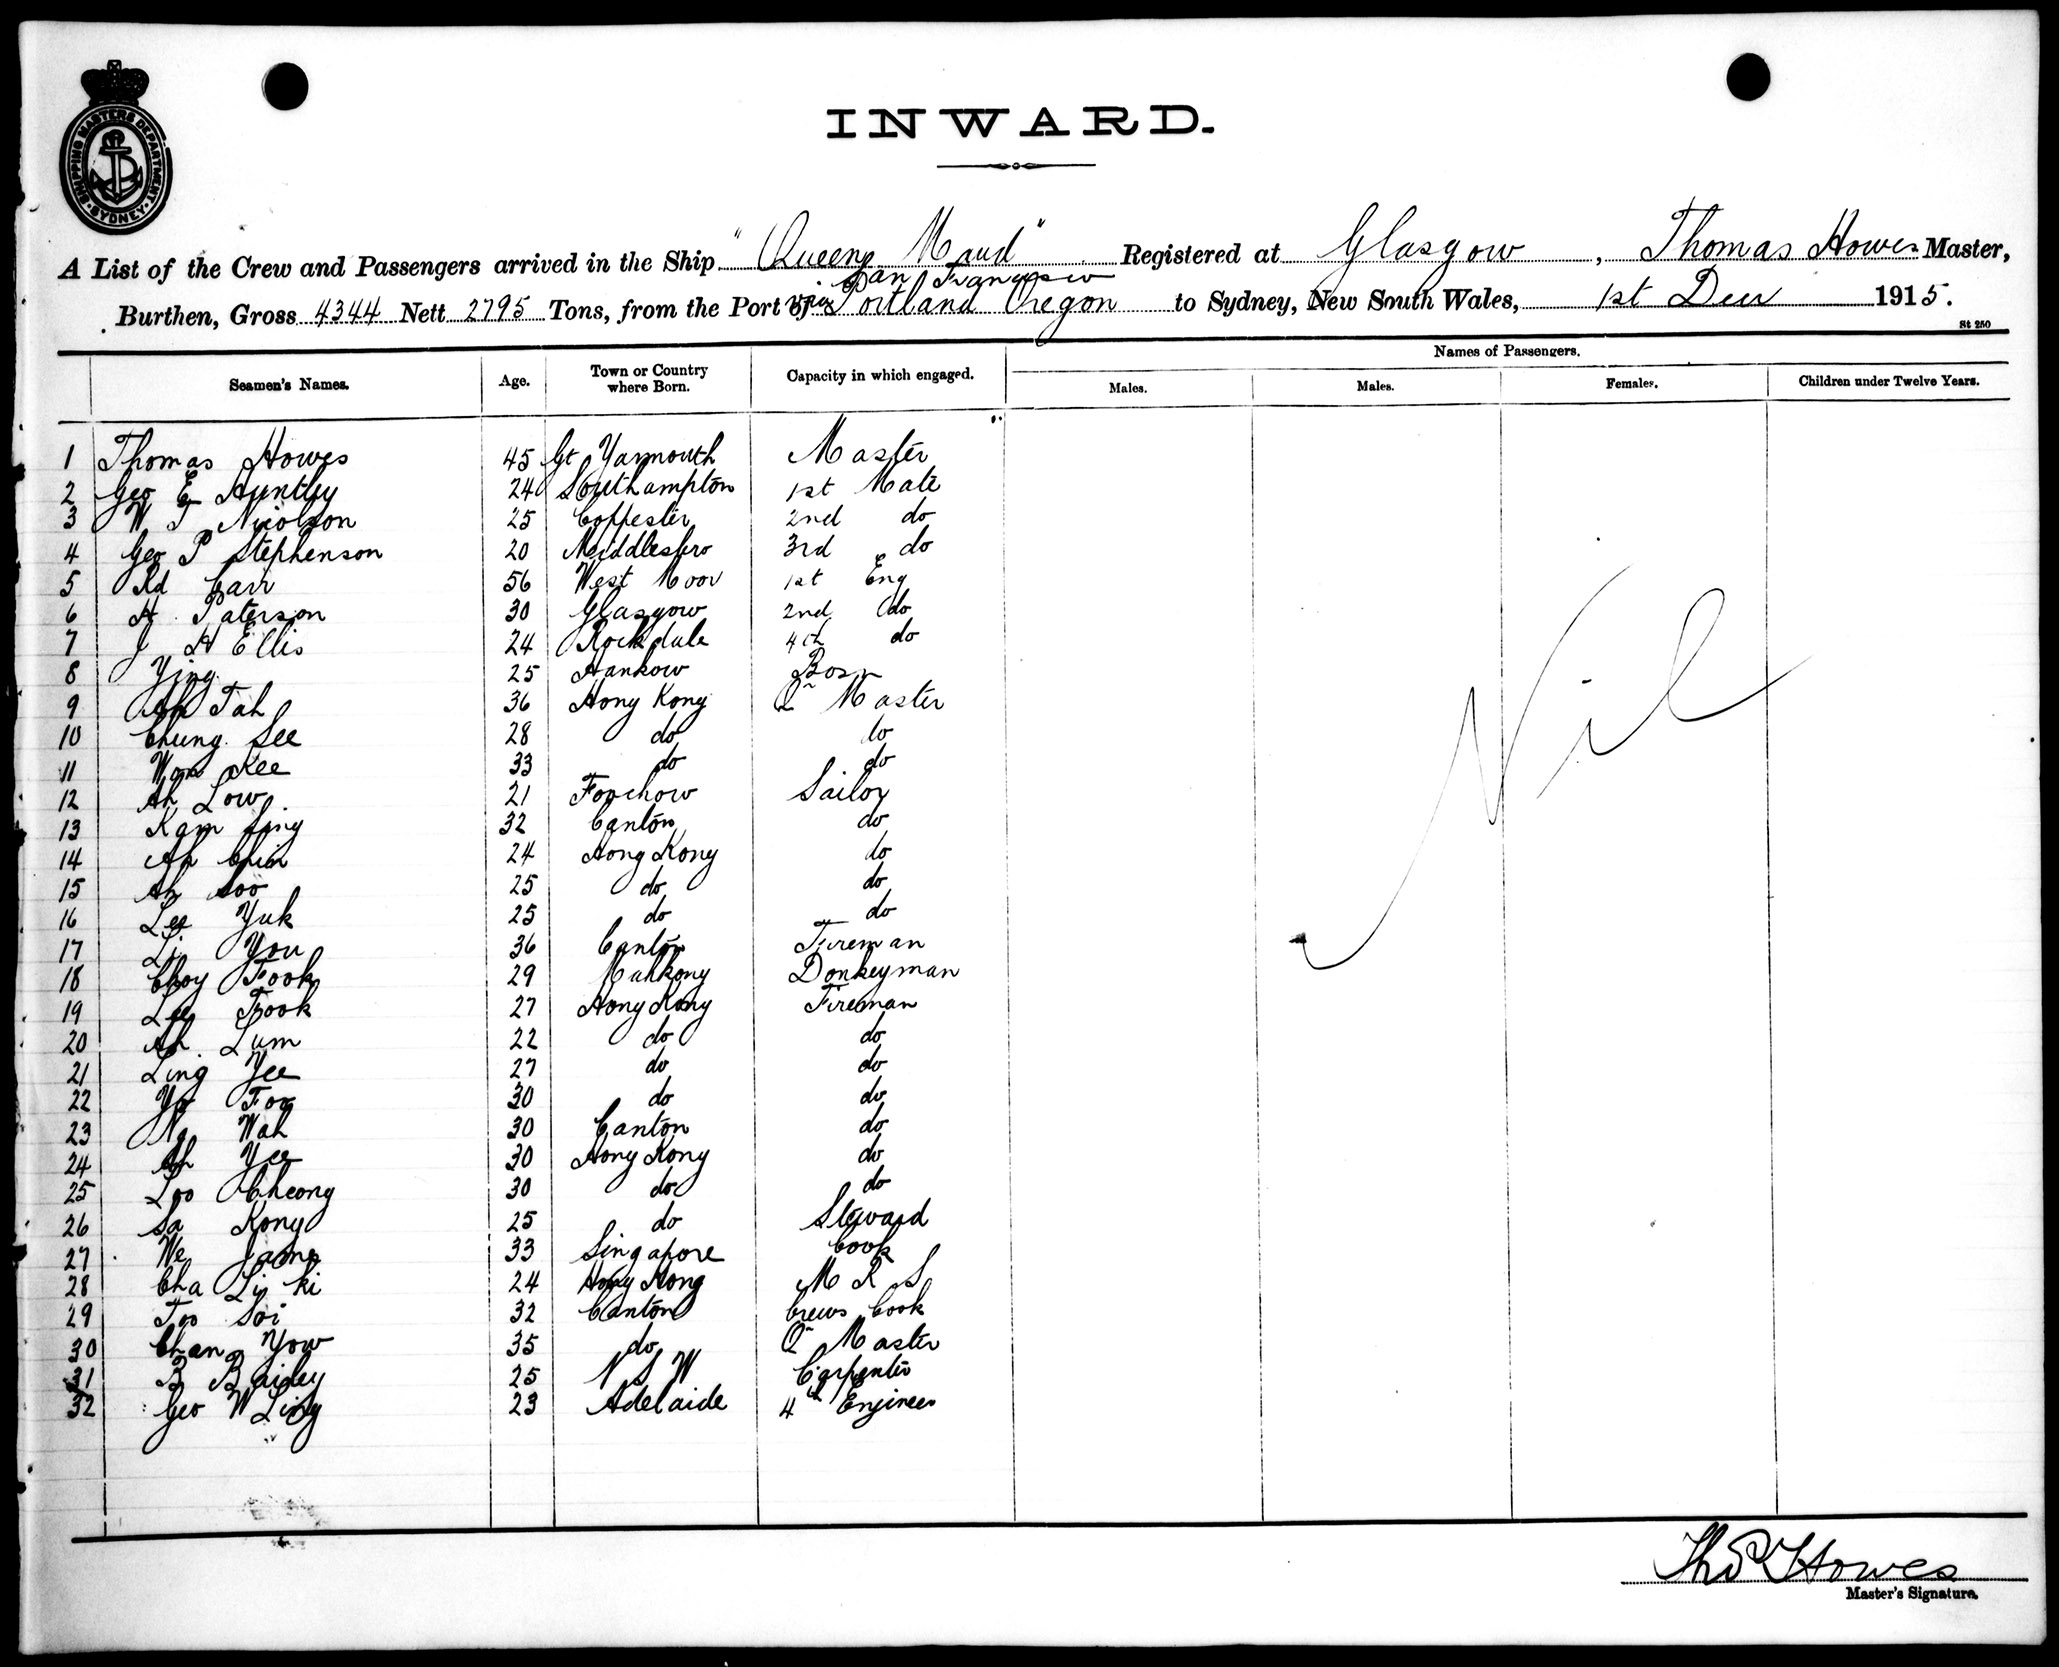 SHIPPING MASTERS DEPARTMENT
SYDNEY
INWARD.
A List of the Crew and Passengers arrived in the Ship "Queen Maud" Registered at Glasgow, Thomas Howes Master,
San Francisco
Burthen, Gross 4344 Nett 2795 Tons, from the Port of via Portland Oregon to Sydney, New South Wales, 1st Decr 1915.
St 250
Names of Passengers.
Seamen's Names. Age. Town or Country where Born. Capacity in which engaged. Males. Males. Females. Children under Twelve Years.
1 Thomas Howes 45 Gt Yarmouth Master
2 Geo E Huntley 24 Southampton 1st Mate
3 W T Nicolson 25 2nd do
4 Geo P Stephenson 20 Middlesbro 3rd do
5 Rd Carr 56 West Moor 1st Eng
6 H Paterson 30 Glasgow 2nd do
7 J H Ellis 24 Rockdale 4th do
8 Ying 25 Hankow Bosn
9 Ah Tah 36 Hong Kong Qr Master
10 Chung See 28 do do
11 Won Kee 33 do do
12 Ah Low 21 Foochow Sailor
13 Kam Sing 32 Canton do
14 Ah Chin 24 Hong Kong do
15 Ah Soo 25 do do
16 Lee Yuk 25 do do
17 Li You 36 Canton Fireman
18 Choy Fook 29 Donkeyman
19 Lee Fook 27 Hong Kong Fireman
20 Ah Lum 22 do do
21 Ling Yee 27 do do
22 Foo 30 do do
23 Wah 30 Canton do
24 Ah Yee 30 Hong Kong do
25 Loo Cheong 30 do do
26 Sa Kong 25 do Steward
27 We 33 Singapore Cook
28 Cha Li ki 24 Hong Kong M R S
29 Foo Soi 32 Canton Crews Cook
30 Chan Yow 35 do Qr Master
31 B 25 N S W Carpenter
32 Geo W Ling 23 Adelaide 4th Engineer
Nil
Thos Howes
Master's Signature.